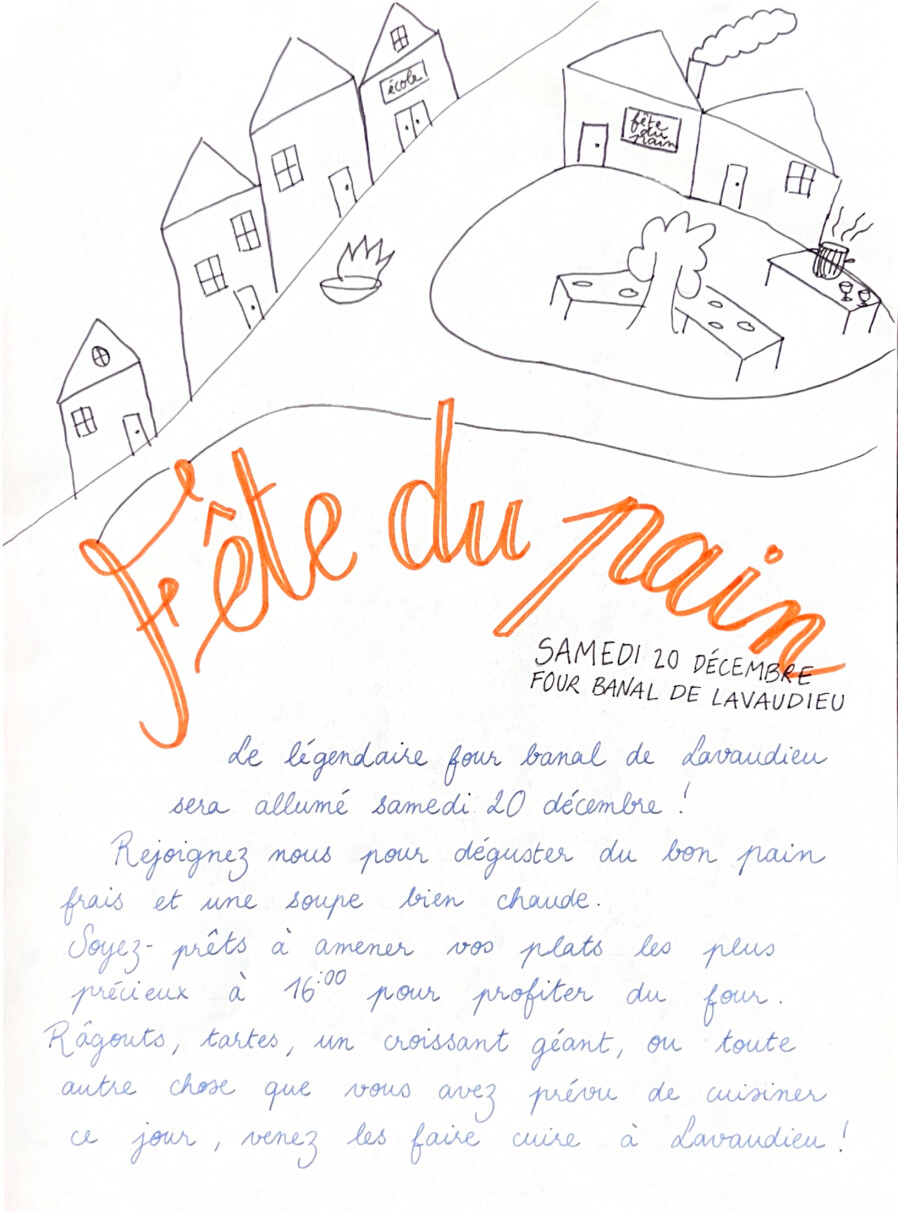 école
fête
du
pain
Fête du pain
SAMEDI 20 DÉCEMBRE
FOUR BANAL DE LAVAUDIEU
Le légendaire four banal de Lavaudieu
sera allumé samedi 20 décembre !
Rejoignez nous pour déguster du bon pain
frais et une soupe bien chaude.
Soyez-prêts à amener vos plats les plus
précieux à 16:00 pour profiter du four.
Râgouts, tartes, un croissant géant, ou toute
autre chose que vous avez prévu de cuisiner
ce jour, venez les faire cuire à Lavaudieu !